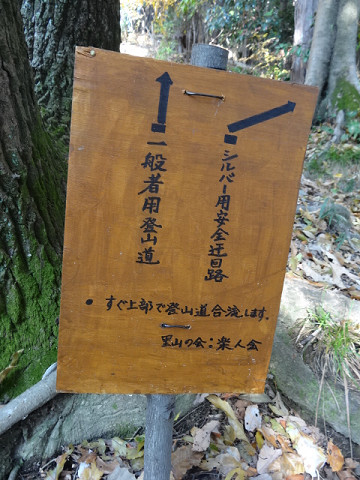 シルバー用安全迂回路
一般者用登山道
• すぐ上部で登山道合流します.
里山の会:楽人会